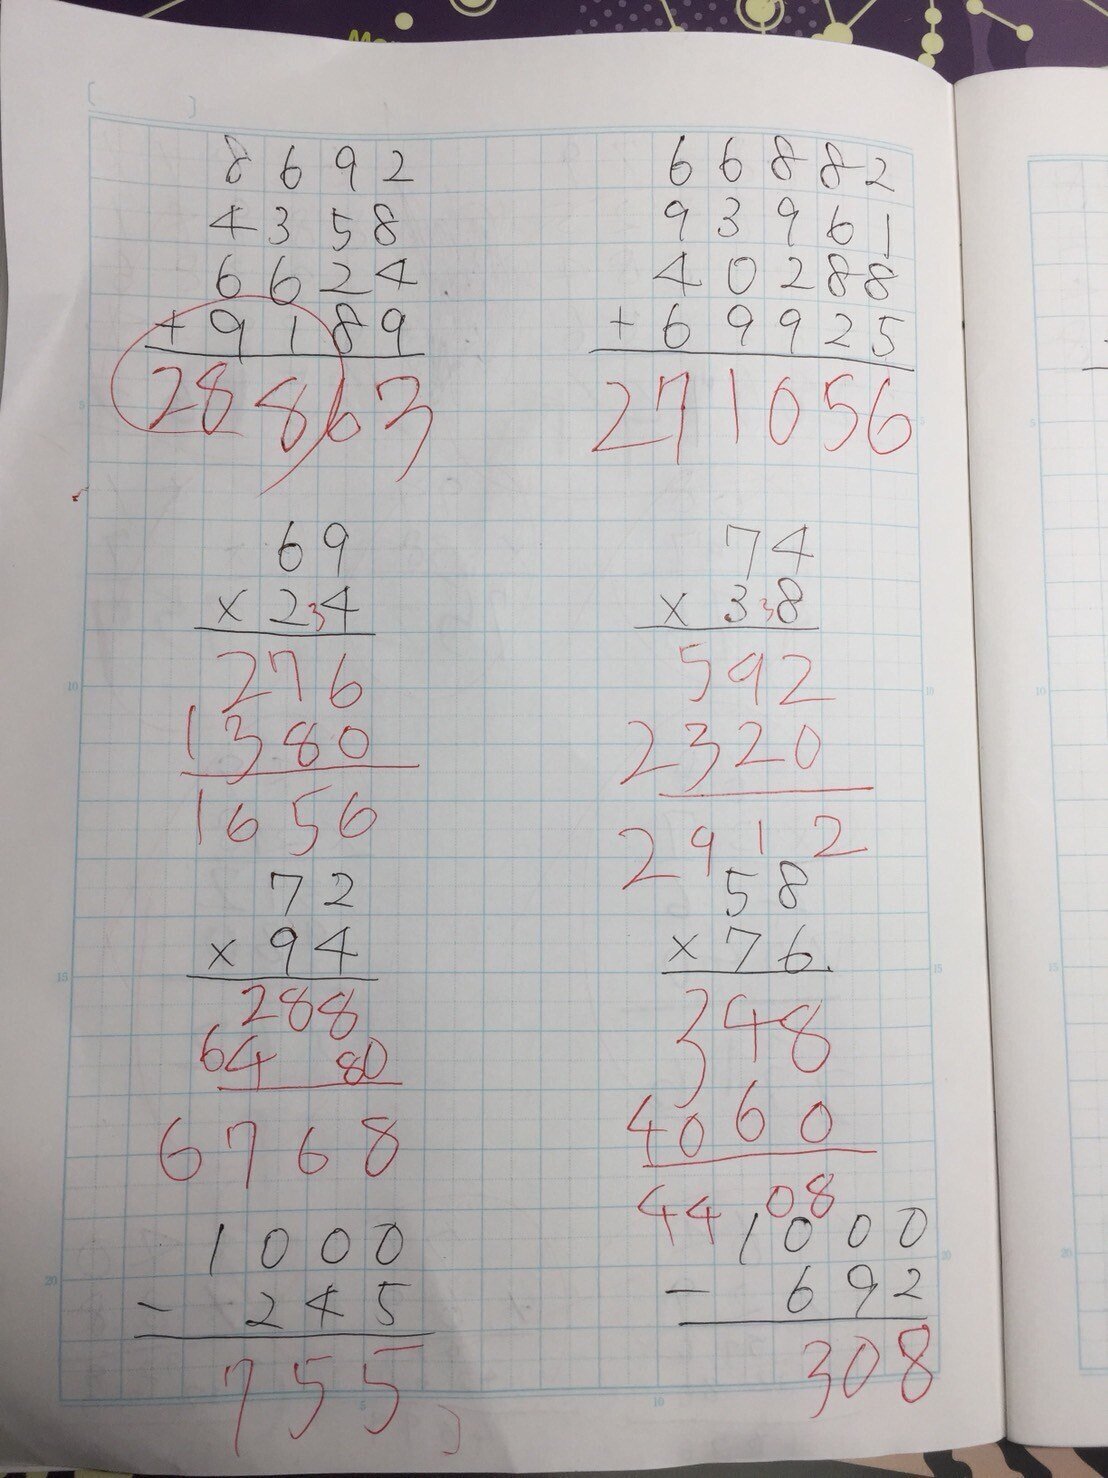 8692
4358
6624
+9189
28863
66882
93961
40288
+69925
271056
69
×234
276
1380
1656
74
×338
592
2320
2912
72
×94
288
6480
6768
58
×76
348
4060
4408
1000
-245
755
1000
-692
308